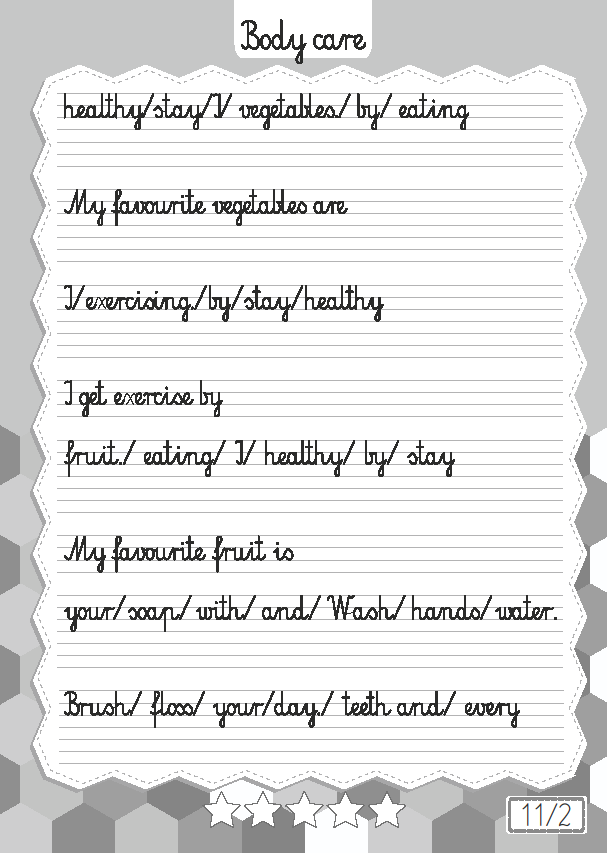 Body care
healthy/stay/I/ vegetables./ by/ eating
My favourite vegetables are
I/exercising./by/stay/healthy
I get exercise by
fruit./ eating/ I/ healthy/ by/ stay
My favourite fruit is
your/soap/ with/ and/ Wash/ hands/ water.
Brush/ floss/ your/day./ teeth and/ every
11/2